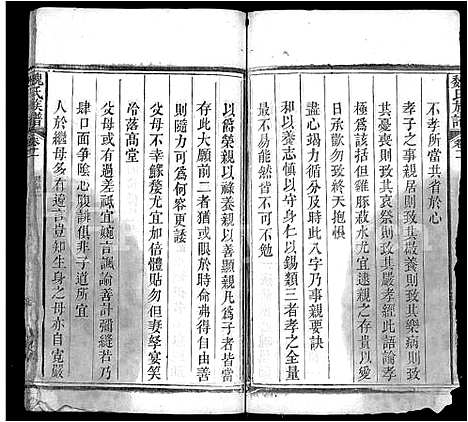 魏氏族譜
卷一
不孝所當共省於心
孝子之事親居則致其敬養則致其樂病則致
其憂喪則致其哀祭則致其嚴孝經此語論孝
極爲該括但雞豚菽水尤宜速親之存貴以及
日承歡勿致終天抱恨
盡心竭力及分及時此八字乃事親要訣
和以養志愼以守身仁以錫類三者孝之全功
最不易能然皆不可不勉
以爵榮親以祿養親以善顯親凡爲子者皆當
存此大願前二者猶或限於時命弗得自由善
則隨力可爲何容更諉
父母不幸鰥嫠尤宜加倍體貼勿但妻孥宴笑
冷落高堂
父母或有過差祗宜婉言諷諭善計彌縫若乃
肆口面爭陰心腹誹俱非子道所宜
人於繼母多有違言豈知生身之母亦自寬嚴
魏氏族譜
卷一